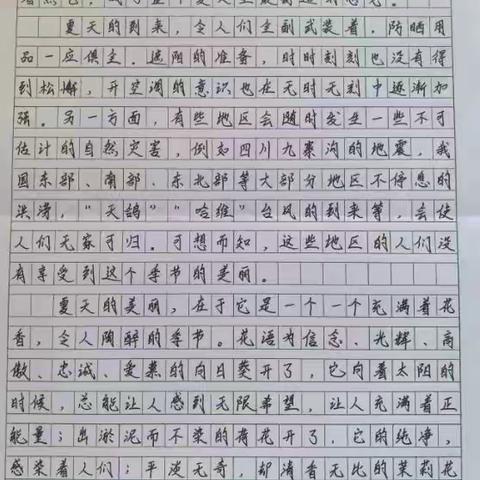 夏天的到来，令人们全副武装着，防晒用
品一应俱全。遮阳的准备，时时刻刻也没有得
到松懈，开空调的意识也在无时无刻中逐渐加
强。另一方面，有些地区会随时发生一些不可
估计的自然灾害，例如四川九寨沟的地震，我
国东部、南部、东北部等大部分地区不停息的
洪涝，“天鸽”“哈维”台风的到来等，会使
人们无家可归。可想而知，这些地区的人们没
有享受到这个季节的美丽。
夏天的美丽，在于它是一个一个充满着花
香，令人陶醉的季节。花语为信念、光辉、高
傲、忠诚、爱慕的向日葵开了，它向着太阳的
时候，总能让人感到无限希望，让人充满着正
能量；出淤泥而不染的荷花开了，它的纯净，
感染着人们；平淡无奇，却清香无比的茉莉花